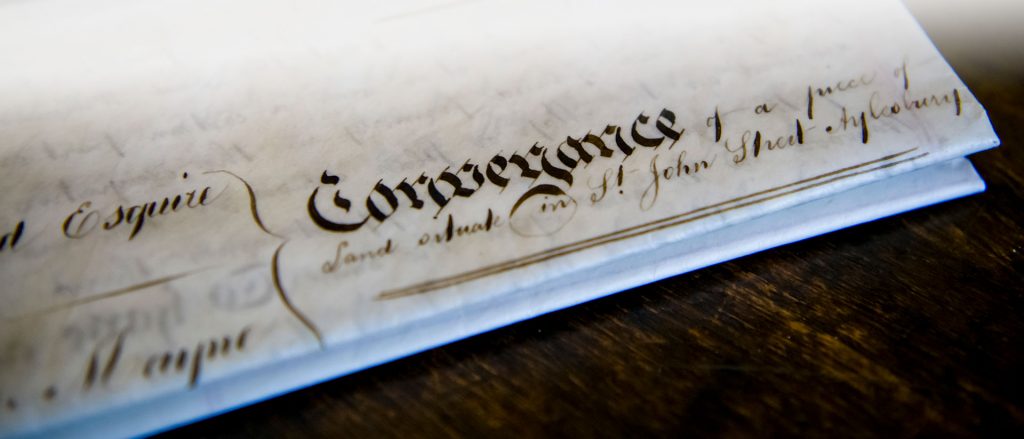 Esquire
Mayne
Conveyance of a piece of
Land situate in St. John Street Aylesbury